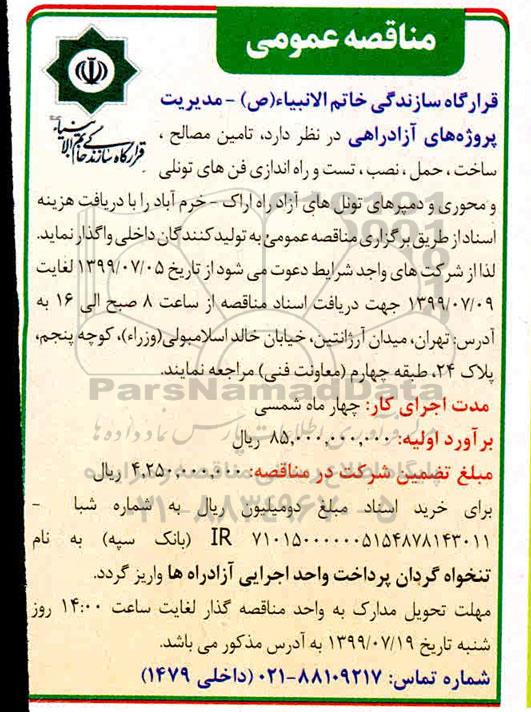 مناقصه عمومی
قرارگاه سازندگی خاتم الانبیاء
قرارگاه سازندگی خاتم الانبیاء(ص) - مدیریت
پروژه‌های آزادراهی در نظر دارد، تامین مصالح ،
ساخت ، حمل ، نصب ، تست و راه اندازی فن های تونلی
و محوری و دمپرهای تونل های آزاد راه اراک - خرم آباد را با دریافت هزینه
اسناد از طریق برگزاری مناقصه عمومی به تولیدکنندگان داخلی واگذار نماید.
لذا از شرکت های واجد شرایط دعوت می شود از تاریخ ۱۳۹۹/۰۷/۰۵ لغایت
۱۳۹۹/۰۷/۰۹ جهت دریافت اسناد مناقصه از ساعت ۸ صبح الی ۱۶ به
آدرس: تهران، میدان آرژانتین، خیابان خالد اسلامبولی(وزراء)، کوچه پنجم،
پلاک ۲۴، طبقه چهارم (معاونت فنی) مراجعه نمایند.
ParsNamadData
مدت اجرای کار: چهار ماه شمسی
برآورد اولیه: ۸۵,۰۰۰,۰۰۰,۰۰۰ ریال
مبلغ تضمین شرکت در مناقصه: ۴,۲۵۰,۰۰۰,۰۰۰ ریال
برای خرید اسناد مبلغ دومیلیون ریال به شماره شبا -
IR ۷۱۰۱۵۰۰۰۰۰۰۵۱۵۴۸۷۸۱۴۳۰۱۱ (بانک سپه) به نام
تنخواه گردان پرداخت واحد اجرایی آزادراه ها واریز گردد.
مهلت تحویل مدارک به واحد مناقصه گذار لغایت ساعت ۱۴:۰۰ روز
شنبه تاریخ ۱۳۹۹/۰۷/۱۹ به آدرس مذکور می باشد.
شماره تماس: ۸۸۱۰۹۲۱۷-۰۲۱ (داخلی ۱۴۷۹)